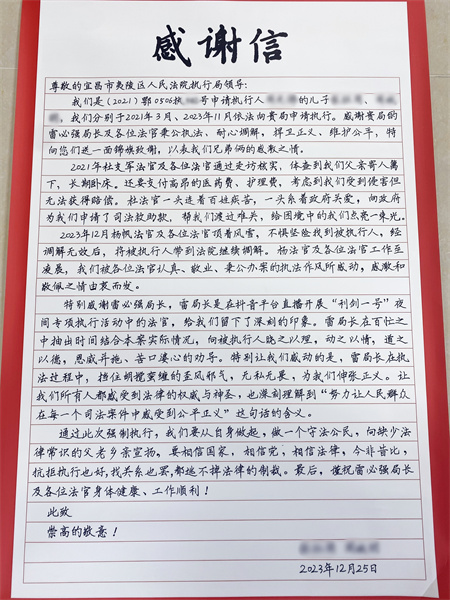 感谢信
尊敬的宜昌市夷陵区人民法院执行局领导:
我们是(2021)鄂0506执 号申请执行人 的儿子 、
,我们分别于2021年3月、2023年11月依法向贵局申请执行。感谢贵局的
雷必强局长及各位法官秉公执法、耐心调解,捍卫正义、维护公平,特
向您们送一面锦旗致谢,以表我们兄弟俩的感激之情。
2021年杜支军法官及各位法官通过走访核实,体查到我们父亲寄人篱
下,长期卧床。还要支付高昂的医药费、护理费,考虑到我们受到侵害但
无法获得赔偿。杜法官一头连着百姓疾苦,一头系着政府关爱,向政府
为我们申请了司法救助款,帮我们渡过难关,给困境中的我们点亮一束光。
2023年12月杨帆法官及各位法官顶着风雪,不惧坚险找到被执行人,经
调解无效后,将被执行人带到法院继续调解。杨法官及各位法官工作至
凌晨,我们被各位法官认真、敬业、秉公办案的执法作风所感动,感激和
敬佩之情由衷而发。
特别感谢雷必强局长,雷局长是在抖音平台直播开展“利剑一号”夜
间专项执行活动中的法官,给我们留下了深刻的印象。雷局长在百忙之
中抽出时间结合本案实际情况,向被执行人晓之以理,动之以情,道之
以德,恩威并施、苦口婆心的劝导。特别让我们感动的是,雷局长在执
法过程中,挡住胡搅蛮缠的歪风邪气,无私无畏,为我们伸张正义。让
我们所有人都感受到法律的权威与神圣,也深刻理解到“努力让人民群众
在每一个司法案件中感受到公平正义”这句话的含义。
通过此次强制执行,我们要从自身做起,做一个守法公民,向缺少法
律常识的父老乡亲宣扬,要相信国家,相信党,相信法律,今非昔比,
抗拒执行也好,找关系也罢,都逃不掉法律的制裁。最后,谨祝雷必强局长
及各位法官身体健康、工作顺利!
此致
崇高的敬意!
2023年12月25日